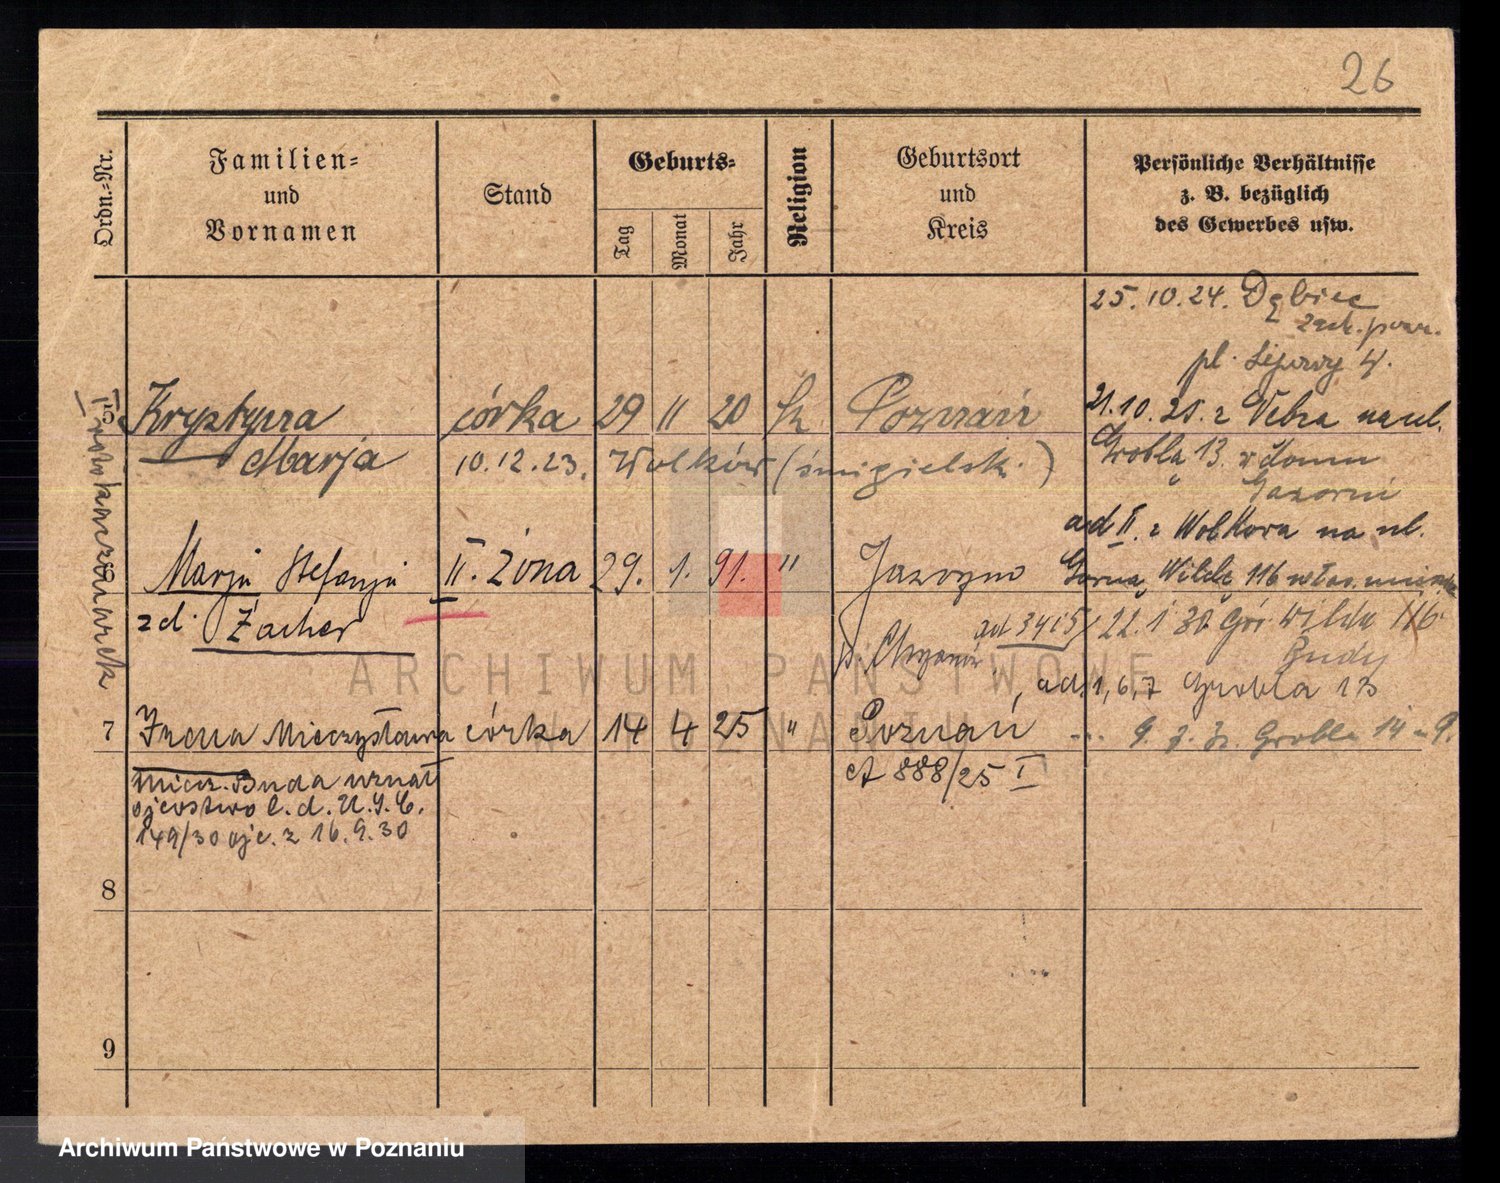 26
Ordn.=Nr.
Familien=
und
Vornamen
Stand
Geburts=
Tag
Monat
Jahr
Religion
Geburtsort
und
Kreis
Persönliche Verhältnisse
z. B. bezüglich
des Gewerbes usw.
25.10.24. Dębiec
zach. pow.
pl. 4.
5 Krystyna córka 29 11 20 k Poznań
Marja 10.12.23. Wolków (śmigielsk.)
21.10.25. z na ul.
Grobla 13. w domu
ad II. z Wolkowa na ul.
Górna Wilda 116
Marja Stefanja II. żona 29. 1. 91. "
zd. Zacher
ad 3 4 i 5 / 22. 1 30. Gór. Wilda 116
Budy
ad. 1, 6, 7 Grobla 13
7 Irena Mieczysława córka 14 4 25 " Poznań
9. Grobla 14
A 888/25 I
Miecz. Buda uznał
ojcostwo l. d. U.S.C.
149/30 ojc. z 16.9.30
8
9
ARCHIWUM PAŃSTWOWE
W POZNANIU
Archiwum Państwowe w Poznaniu